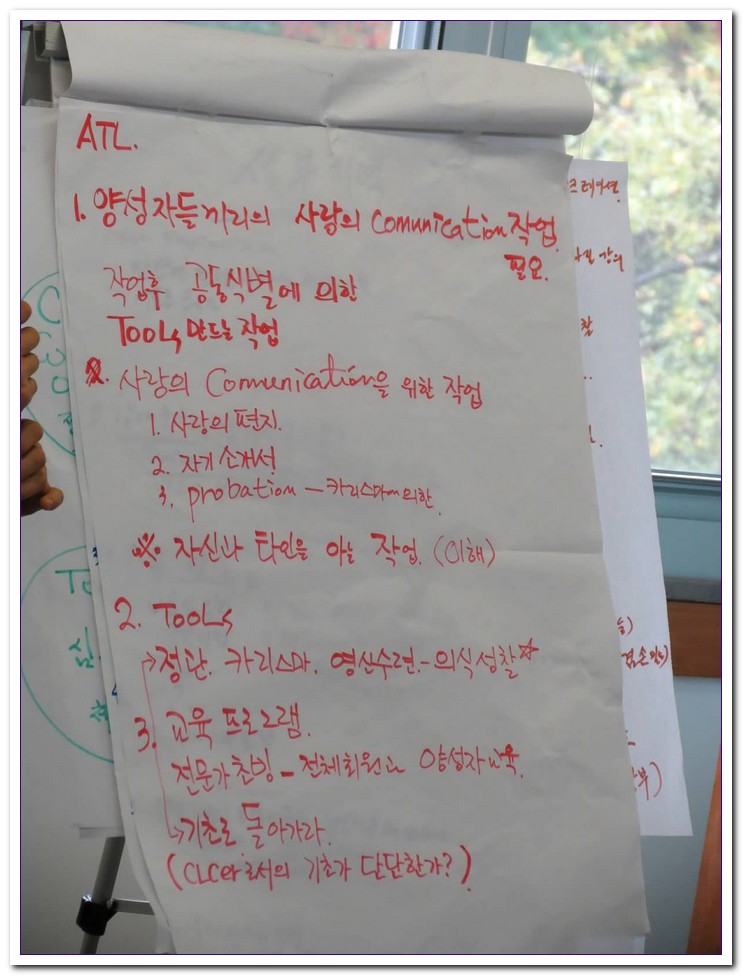 ATL.
1. 양성자들끼리의 사랑의 comunication 작업
필요.
작업후 공동식별에 의한
TOOLs 만드는 작업
2. 사랑의 Comunication을 위한 작업
1. 사랑의 편지.
2. 자기 소개서
3. probation - 카리스마에 의한.
※ 자신과 타인을 아는 작업. (이해)
2. TOOLs
→정관. 카리스마. 영신수련. - 의식성찰☆
3. 교육 프로그램.
전문가 초빙 - 전체회원과 양성자 교육.
↳기초로 돌아가라.
(CLCer로서의 기초가 단단한가?)
강의